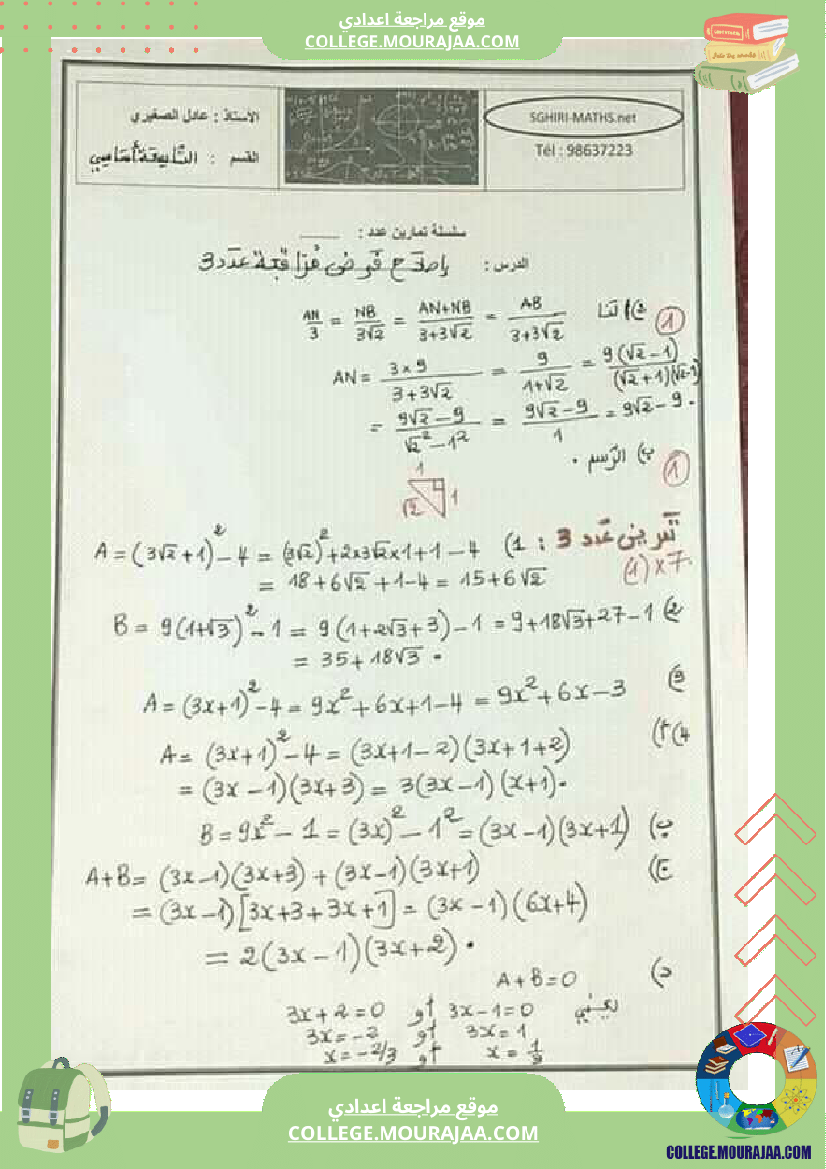 موقع مراجعة اعدادي
COLLEGE.MOURAJAA.COM
الأستاذ : عادل الصغيري
القسم : التاسعة أساسي
SGHIRI-MATHS.net
Tél : 98637223
سلسلة تمارين عدد : ........
الدرس : إصلاح فرض مراقبة عدد 3
لنا AN/3 = NB/3√2 = AN+NB/3+3√2 = AB/3+3√2
1
AN = 3×9/3+3√2 = 9/1+√2 = 9(√2-1)/(√2+1)(√2-1)
= 9√2-9/√2²-1² = 9√2-9/1 = 9√2-9.
ب) الرسم .
1
1
√2
1
تمرين عدد 3 :
(1)×7
1) A = (3√2+1)²-4 = (3√2)²+2×3√2×1+1-4
= 18+6√2+1-4 = 15+6√2
2) B = 9(1+√3)²-1 = 9(1+2√3+3)-1 = 9+18√3+27-1
= 35+18√3.
3) A = (3x+1)²-4 = 9x²+6x+1-4 = 9x²+6x-3
4) أ) A = (3x+1)²-4 = (3x+1-2)(3x+1+2)
= (3x-1)(3x+3) = 3(3x-1)(x+1).
ب) B = 9x²-1 = (3x)²-1² = (3x-1)(3x+1)
ج) A+B = (3x-1)(3x+3)+(3x-1)(3x+1)
= (3x-1)[3x+3+3x+1] = (3x-1)(6x+4)
= 2(3x-1)(3x+2).
د) A+B=0
يعني 3x-1=0 أو 3x+2=0
3x=1 أو 3x=-2
x=1/3 أو x=-2/3
موقع مراجعة اعدادي
COLLEGE.MOURAJAA.COM
COLLEGE.MOURAJAA.COM